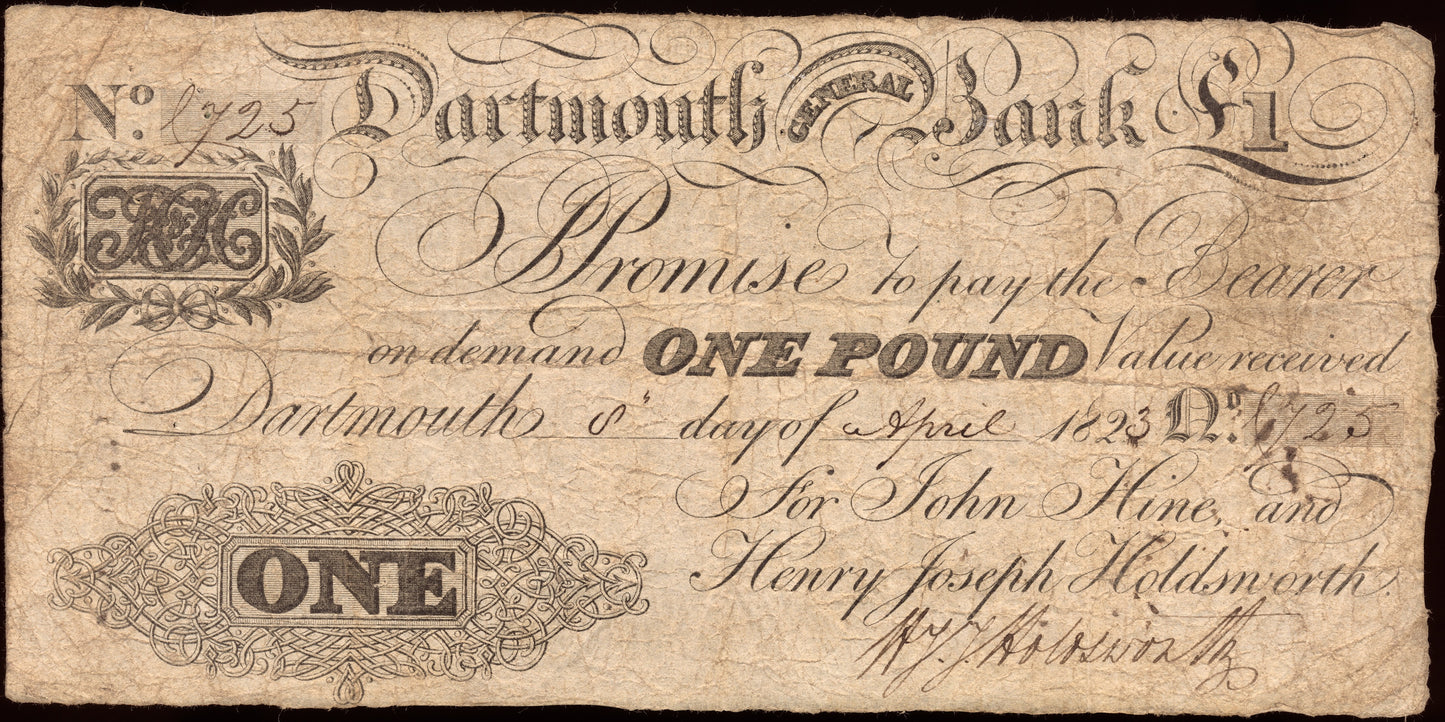 No. 1725 Dartmouth GENERAL Bank £1
H&H
I Promise to pay the Bearer
on demand ONE POUND Value received
Dartmouth 8" day of April 1823 No. 1725
For John Hine, and
Henry Joseph Holdsworth.
ONE
H J Holdsworth